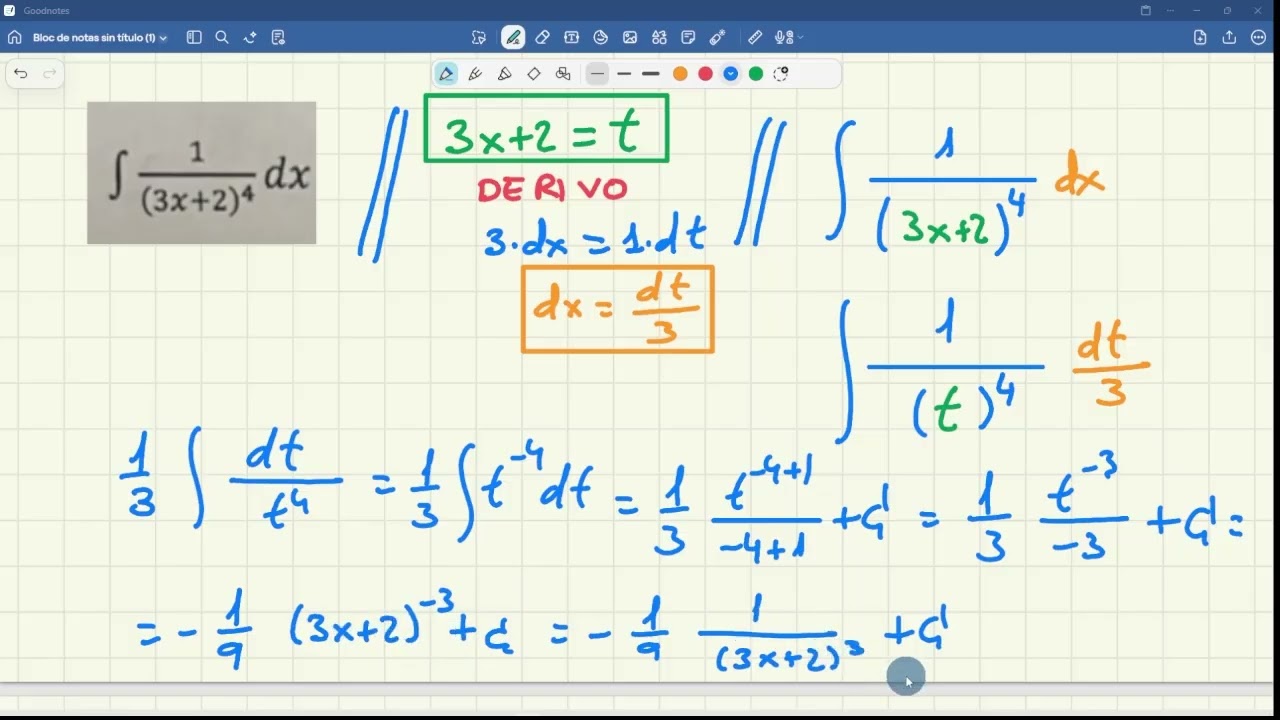 Goodnotes
Bloc de notas sin título (1)
∫ 1/(3x+2)⁴ dx
3x+2 = t
DERIVO
3·dx = 1·dt
dx = dt/3
∫ 1/(3x+2)⁴ dx
∫ 1/(t)⁴ dt/3
1/3 ∫ dt/t⁴ = 1/3 ∫ t⁻⁴ dt = 1/3 t⁻⁴⁺¹/(-4+1) + C = 1/3 t⁻³/-3 + C =
= - 1/9 (3x+2)⁻³ + C = - 1/9 1/(3x+2)³ + C